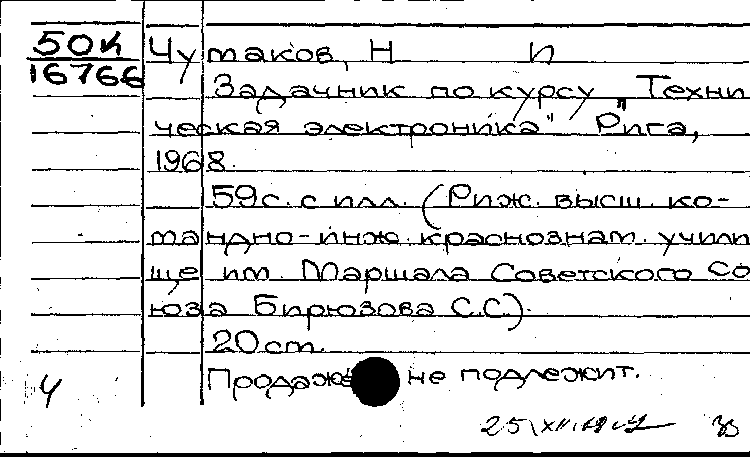 50к
16766
Чутаков, Н П
Задачник по курсу „Техни
ческая электроника" Рига,
1968.
59с. с илл. (Риж. высш. ко-
мандно-инж. краснознам. учили
ще им. Маршала Советского Со
юза Бирюзова С.С.).
20 cm.
Продаже не подлежит.
Ч
25\XII.69